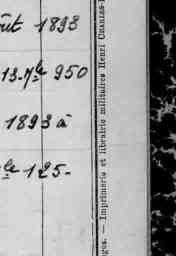 oût 1893
13.7bre 950
1893 à
le 125-
ges. — Imprimerie et librairie militaires Henri CHARLES-